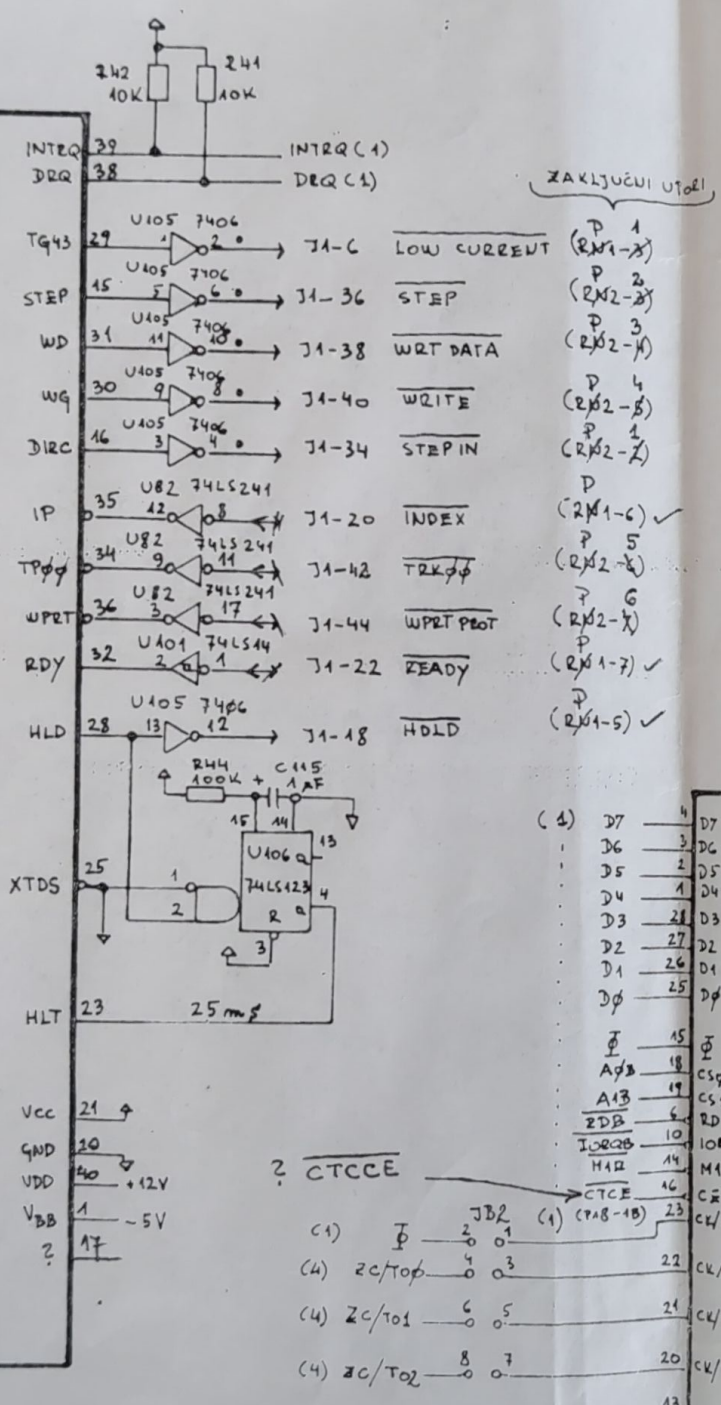 R42 R41
10K 10K
INTRQ 39 INTRQ (1)
DRQ 38 DRQ (1)
ZAKLJUČNI UTORI
TG43 29 U105 7406 1 2 J1-6 LOW CURRENT P 1 (RN1-3)
STEP 15 U105 7406 5 6 J1-36 STEP P 2 (RN2-3)
WD 31 U105 7406 11 10 J1-38 WRT DATA P 3 (RN2-4)
WG 30 U105 7406 9 8 J1-40 WRITE P 4 (RN2-5)
DIRC 16 U105 7406 3 4 J1-34 STEP IN P 1 (RN2-2)
IP 35 U82 74LS241 12 8 J1-20 INDEX P (RN1-6) ✓
TRØØ 34 U82 74LS241 9 11 J1-42 TRKØØ P 5 (RN2-6)
WPRT 36 U82 74LS241 3 17 J1-44 WPRT PROT P 6 (RN2-7)
RDY 32 U101 74LS14 2 1 J1-22 READY P (RN1-7) ✓
HLD 28 U105 7406 13 12 J1-18 HDLD P (RN1-5) ✓
R44 100K + C115 1 µF
15 14 13
XTDS 25 1 2 U106 Q 74LS123 4 R Q 3
HLT 23 25 ms
VCC 21
GND 20
VDD 40 +12V
VBB 1 -5V
? 17
(1) D7 4 D7
D6 3 D6
D5 2 D5
D4 1 D4
D3 28 D3
D2 27 D2
D1 26 D1
DØ 25 DØ
Φ 15 Φ
AØB 18 CSØ
A1B 19 CS
RDB 6 RD
IORQB 10 IO
M1B 14 M1
? CTCCE CTCE 16 CE
(1) (P18-1B) 23 CK/
(1) Φ 2 JB2 1
(4) ZC/TOØ 4 3 22 CK/
(4) ZC/TO1 6 5 21 CK/
(4) ZC/TO2 8 7 20 CK/